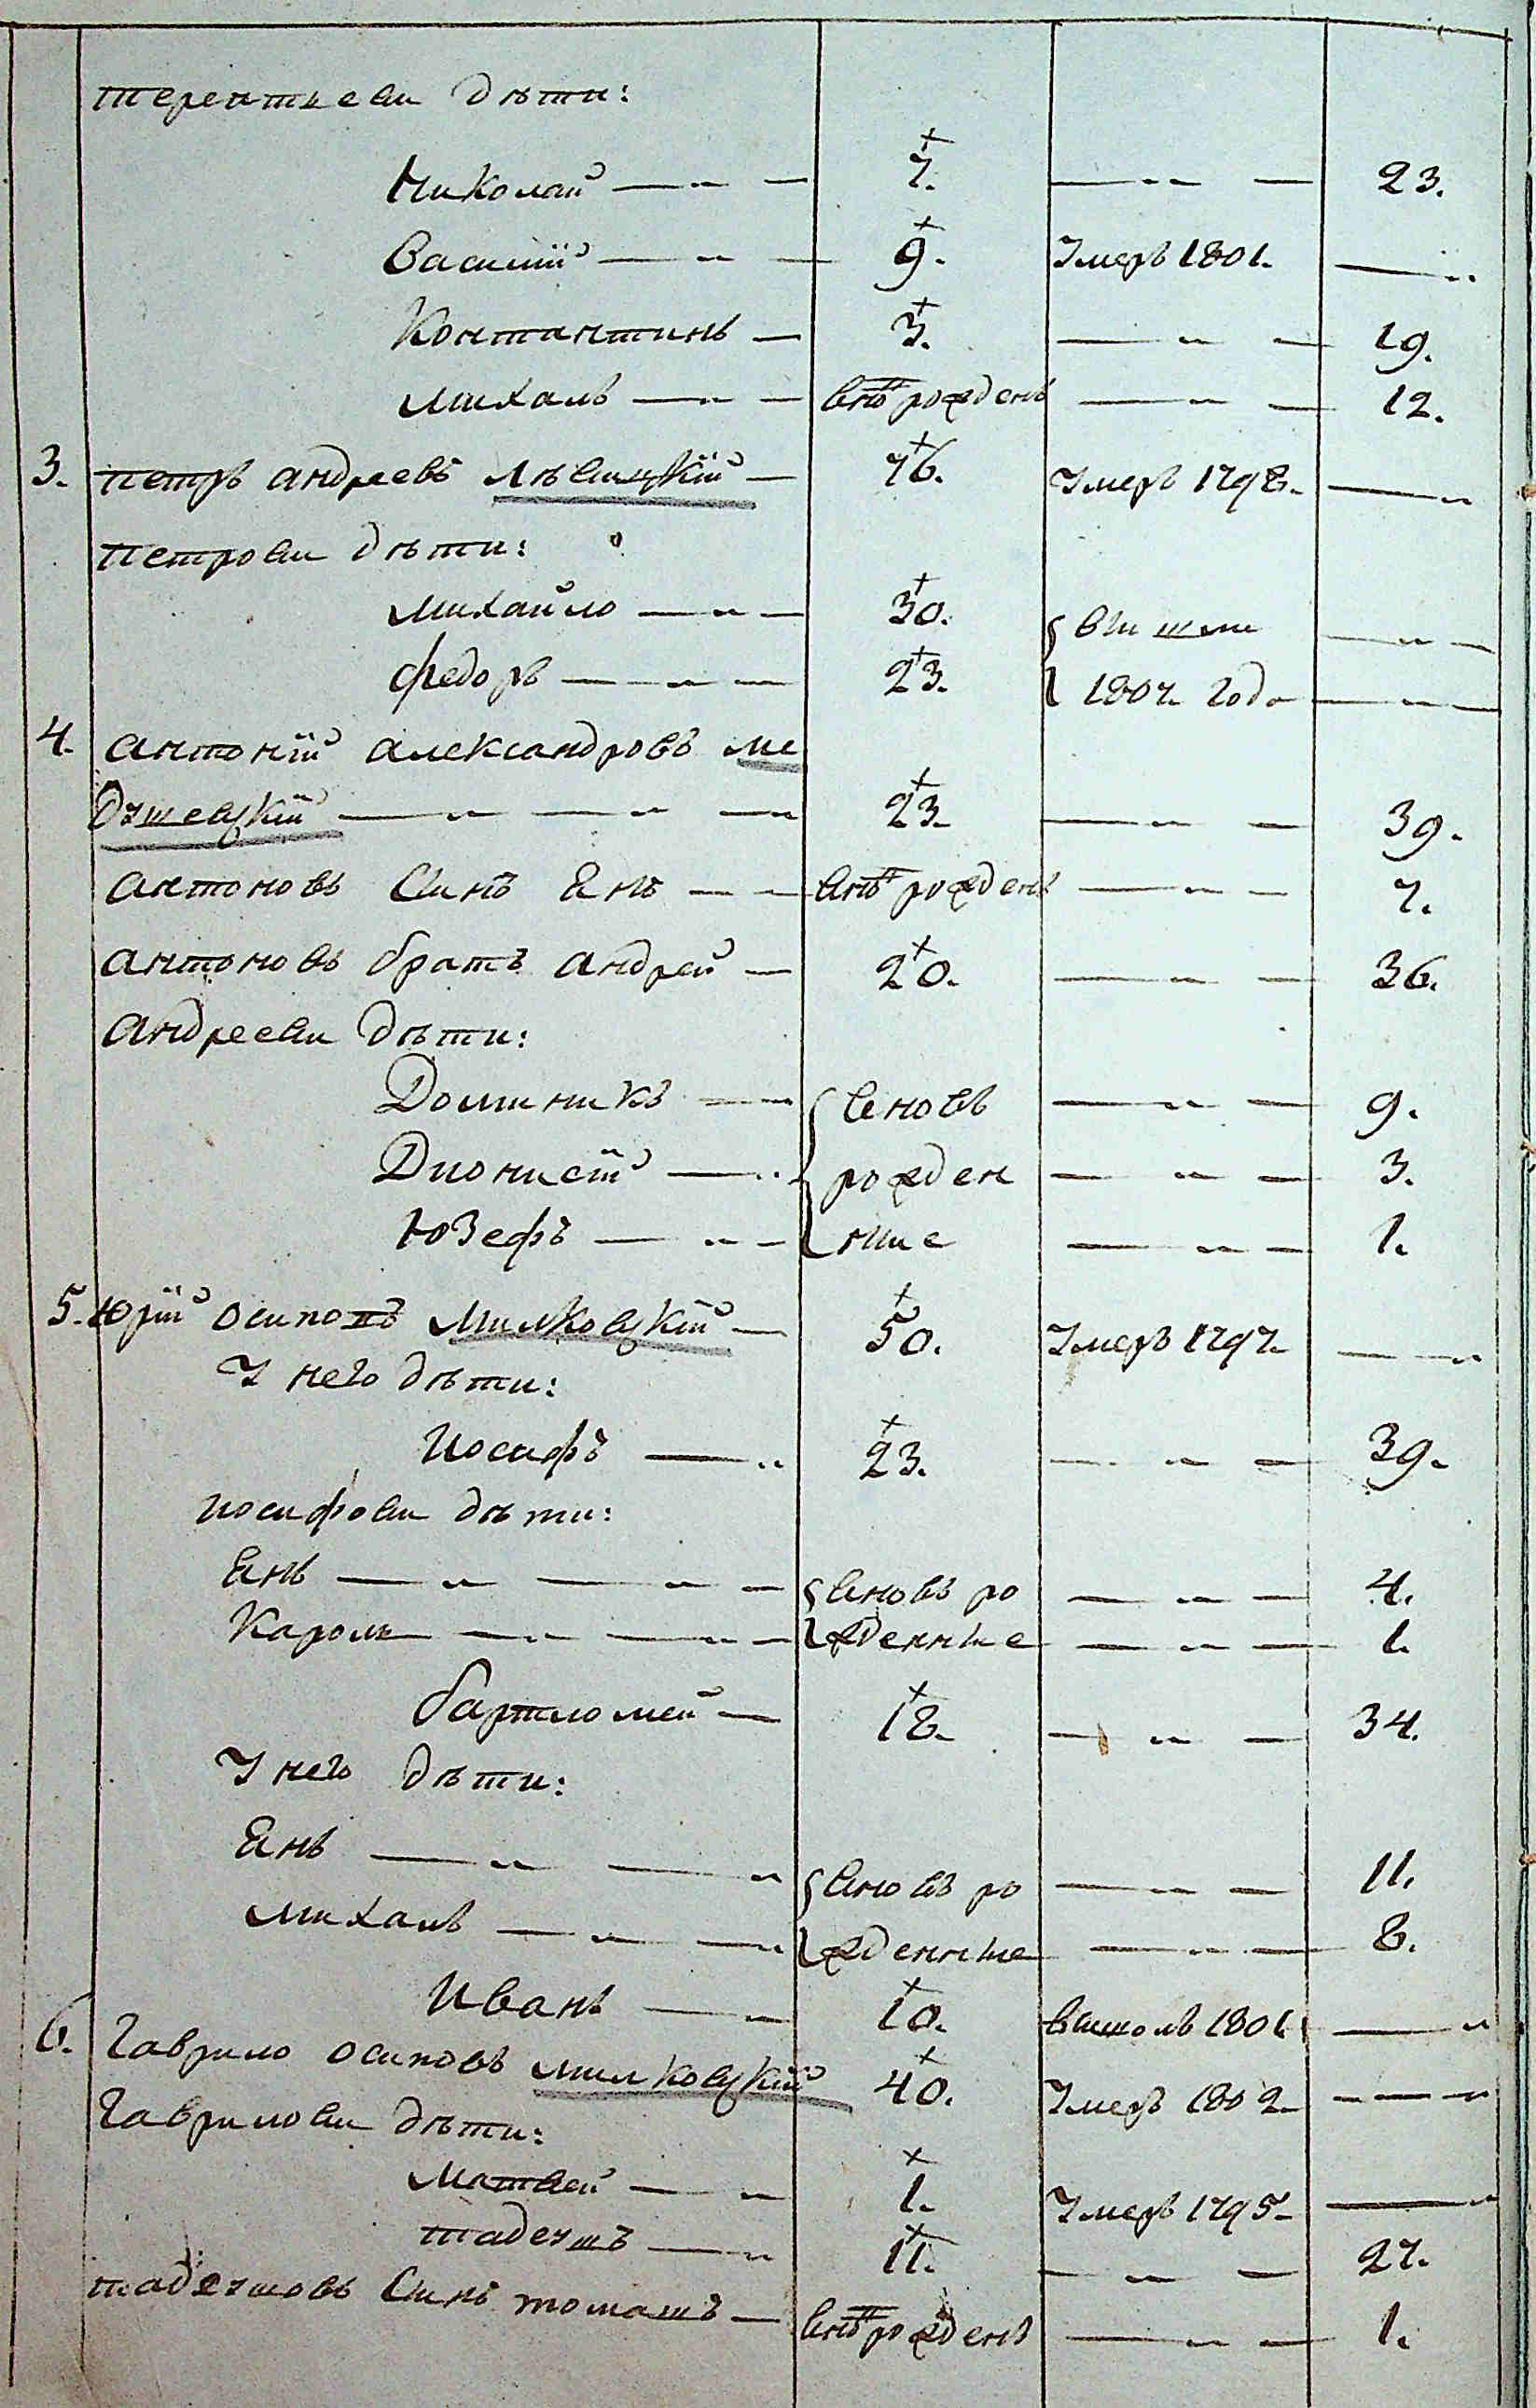 терентьеви дѣти:
Николай — „ — 7. — „ — 23.
Василій — „ — 9. Умеръ 1801. — „
Контантинъ — 3. — „ — 19.
михалъ — „ — внѡ рожденъ — „ — 12.
3. петръ андреевъ Лѣвицкій — 46. Умеръ 1798. — „
петрови дѣти:
михайло — „ — 30. вишли — „ —
федоръ — „ — 23. 1807. года — „ —
4. антоній александровъ ме
душевскій — „ — „ — 23. — „ — 39.
антоновъ синъ Янъ — — рожденъ — „ — 7.
антоновъ братъ андрей — 20. — „ — 36.
андрееви дѣти:
Доминикъ — „ вновь — „ — 9.
Дионисій — „ рожден — „ — 3.
Юзефъ — „ — ние — „ — 1.
5. Юрій осиповъ Милковскій — 50. Умеръ 1797. — „
У него дѣти:
Иосифъ — „ 23. — „ — 39.
иосифови дѣти:
Янъ — „ — „ — вновь ро — „ — 4.
Кароль — „ — „ — жденные — „ — 1.
бартломей — 18. — „ — 34.
У него дѣти:
Янъ — „ — „ вновь ро — „ — 11.
михалъ — „ — „ жденные — „ — 8.
Иванъ — „ 10. вишолъ 1801. — „
6. Гаврило осиповъ милковскій 40. Умеръ 1802. — — „
Гаврилови дѣти:
Матвей — „ 1. Умеръ 1795. — „
тадеушъ — „ 11. — „ — 27.
тадеушовъ синъ томашъ — рожденъ — „ — 1.